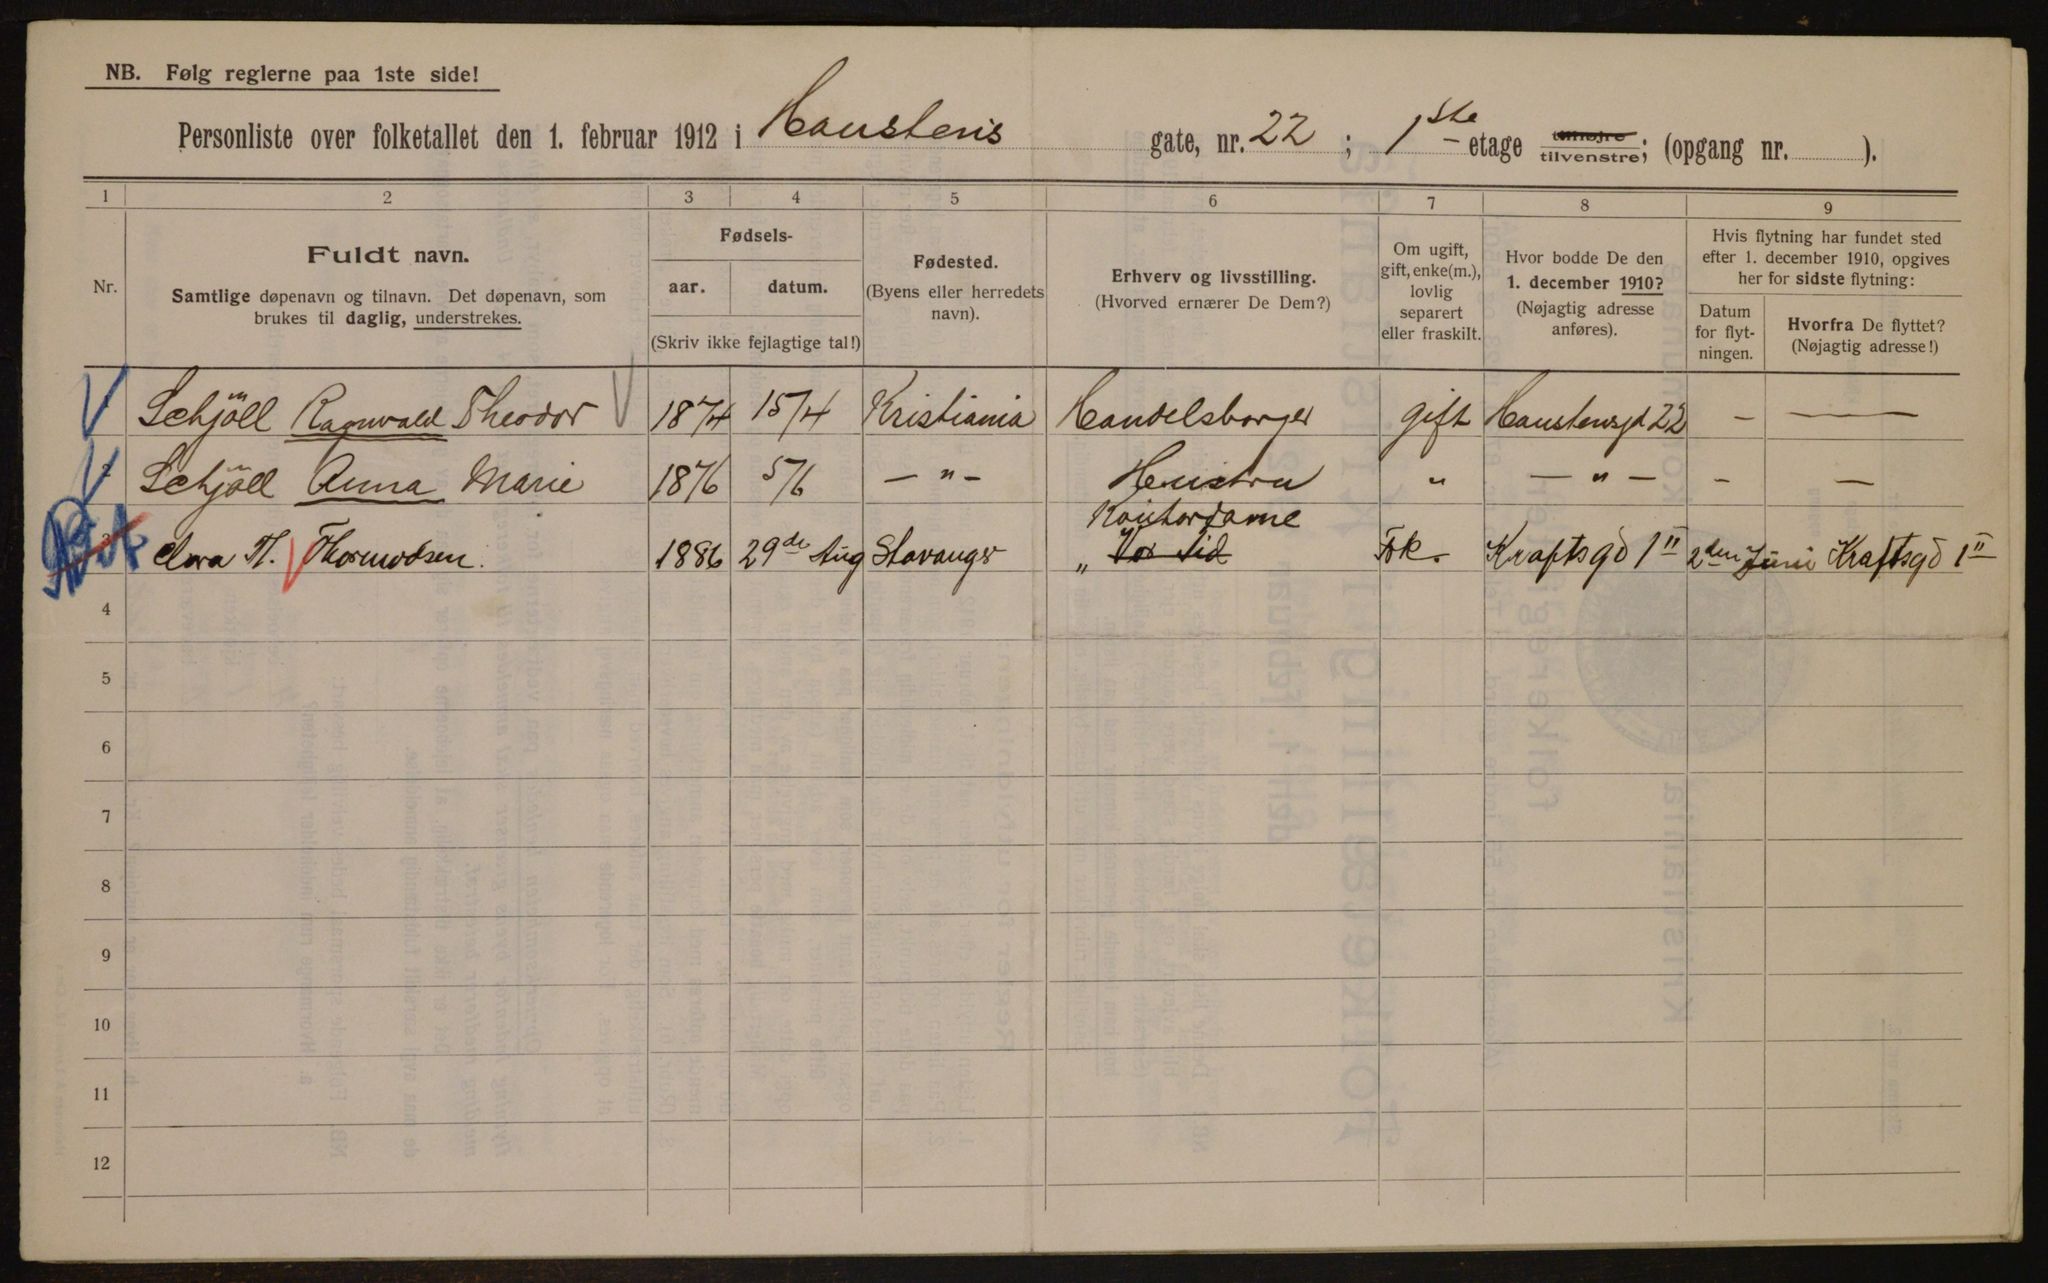 NB. Følg reglerne paa 1ste side!
Personliste over folketallet den 1. februar 1912 i Haustens gate, nr. 22 ; 1ste etage tilhøjre tilvenstre; (opgang nr. ).
1 2 3 4 5 6 7 8 9
Nr.
Fuldt navn.
Samtlige døpenavn og tilnavn. Det døpenavn, som
brukes til daglig, understrekes.
Fødsels-
aar. datum.
(Skriv ikke fejlagtige tal!)
Fødested.
(Byens eller herredets
navn).
Erhverv og livsstilling.
(Hvorved ernærer De Dem?)
Om ugift,
gift, enke(m.),
lovlig
separert
eller fraskilt.
Hvor bodde De den
1. december 1910?
(Nøjagtig adresse
anføres).
Hvis flytning har fundet sted
efter 1. december 1910, opgives
her for sidste flytning:
Datum
for flyt-
ningen.
Hvorfra De flyttet?
(Nøjagtig adresse!)
Schjöll Ragnvald Theodor 1874 15/4 Kristiania Handelsborger gift Haustensgd 22 — —
Schjöll Anna Marie 1876 5/6 — " — Hustru " — " — — —
Kontordame
3 Clara Th. Thormodsen. 1886 29de Aug Stavanger " Kraftsgd 1 II 2den Juni Kraftsgd 1 II
4
5
6
7
8
9
10
11
12